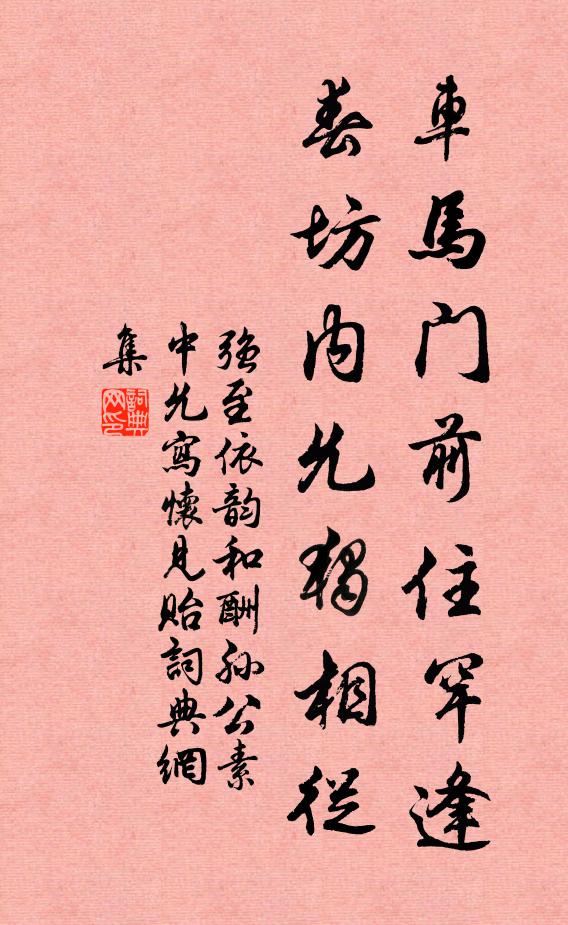 車馬門前住罕逢
春坊内允獨相從
强至依韵和酬孫公素
中允寫懷見貽詞典網
集
詞典
网印